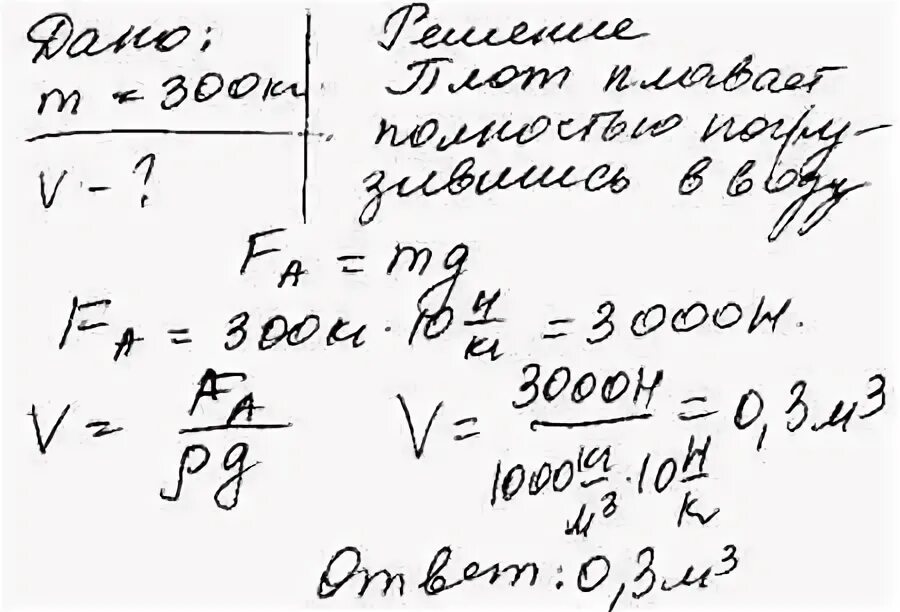 Дано:
m = 300кг
V - ?
Решение
Плот плавает
полностью погру-
зившись в воду
F_A = mg
F_A = 300кг · 10 Н/кг = 3000Н.
V = F_A / ρg
V = 3000Н / 1000 кг/м³ · 10 Н/кг = 0,3 м³
Ответ: 0,3 м³